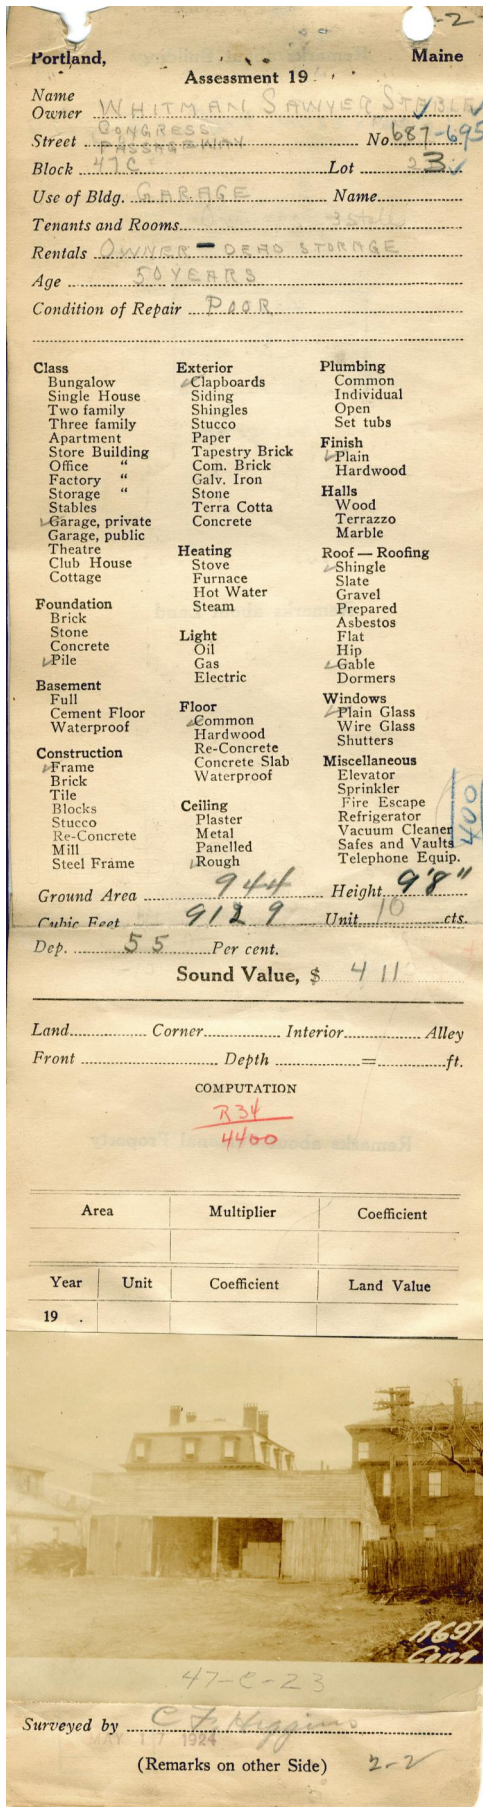 -2-
Portland, Maine
Assessment 19
Name
Owner WHITMAN SAWYER STABLE
Street CONGRESS PASSAGEWAY No. 687-695
Block 47C Lot 23
Use of Bldg. GARAGE Name
Tenants and Rooms 3 stall
Rentals OWNER - DEAD STORAGE
Age 50 YEARS
Condition of Repair POOR
Class
Bungalow
Single House
Two family
Three family
Apartment
Store Building
Office "
Factory "
Storage "
Stables
✓Garage, private
Garage, public
Theatre
Club House
Cottage
Foundation
Brick
Stone
Concrete
✓Pile
Basement
Full
Cement Floor
Waterproof
Construction
✓Frame
Brick
Tile
Blocks
Stucco
Re-Concrete
Mill
Steel Frame
Exterior
✓Clapboards
Siding
Shingles
Stucco
Paper
Tapestry Brick
Com. Brick
Galv. Iron
Stone
Terra Cotta
Concrete
Heating
Stove
Furnace
Hot Water
Steam
Light
Oil
Gas
Electric
Floor
✓Common
Hardwood
Re-Concrete
Concrete Slab
Waterproof
Ceiling
Plaster
Metal
Panelled
✓Rough
Plumbing
Common
Individual
Open
Set tubs
Finish
✓Plain
Hardwood
Halls
Wood
Terrazzo
Marble
Roof — Roofing
✓Shingle
Slate
Gravel
Prepared
Asbestos
Flat
Hip
✓Gable
Dormers
Windows
✓Plain Glass
Wire Glass
Shutters
Miscellaneous
Elevator
Sprinkler
Fire Escape
Refrigerator
Vacuum Cleaner
Safes and Vaults
Telephone Equip.
400
Ground Area 944 Height 9'8"
Cubic Feet 9129 Unit 10 cts.
Dep. 55 Per cent.
Sound Value, $ 411
Land Corner Interior Alley
Front Depth = ft.
COMPUTATION
R34
4400
Area Multiplier Coefficient
Year Unit Coefficient Land Value
19 .
R697
Cong
47-C-23
Surveyed by C F Higgins
MAY 17 1924
(Remarks on other Side) 2-2